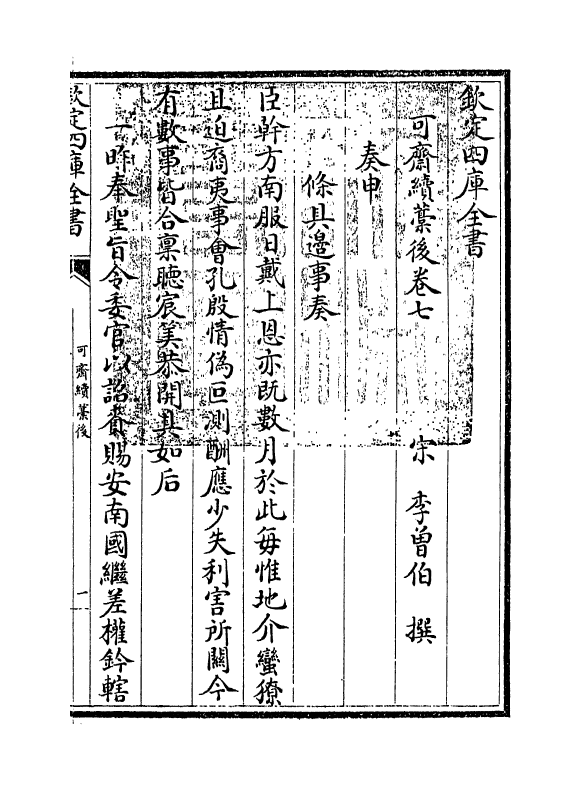 欽定四庫全書
可齋續藁後卷七
宋 李曾伯 撰
奏申
條具邊事奏
臣幹方南服日戴上恩亦既數月於此每惟地介蠻獠
且迫裔夷事會孔殷情偽叵測酬應少失利害所關今
有數事皆合稟聽宸筭恭開具如后
一昨奉聖旨令委官以詔賚賜安南國繼差權鈐轄
欽定四庫全書
可齋續藁後
一